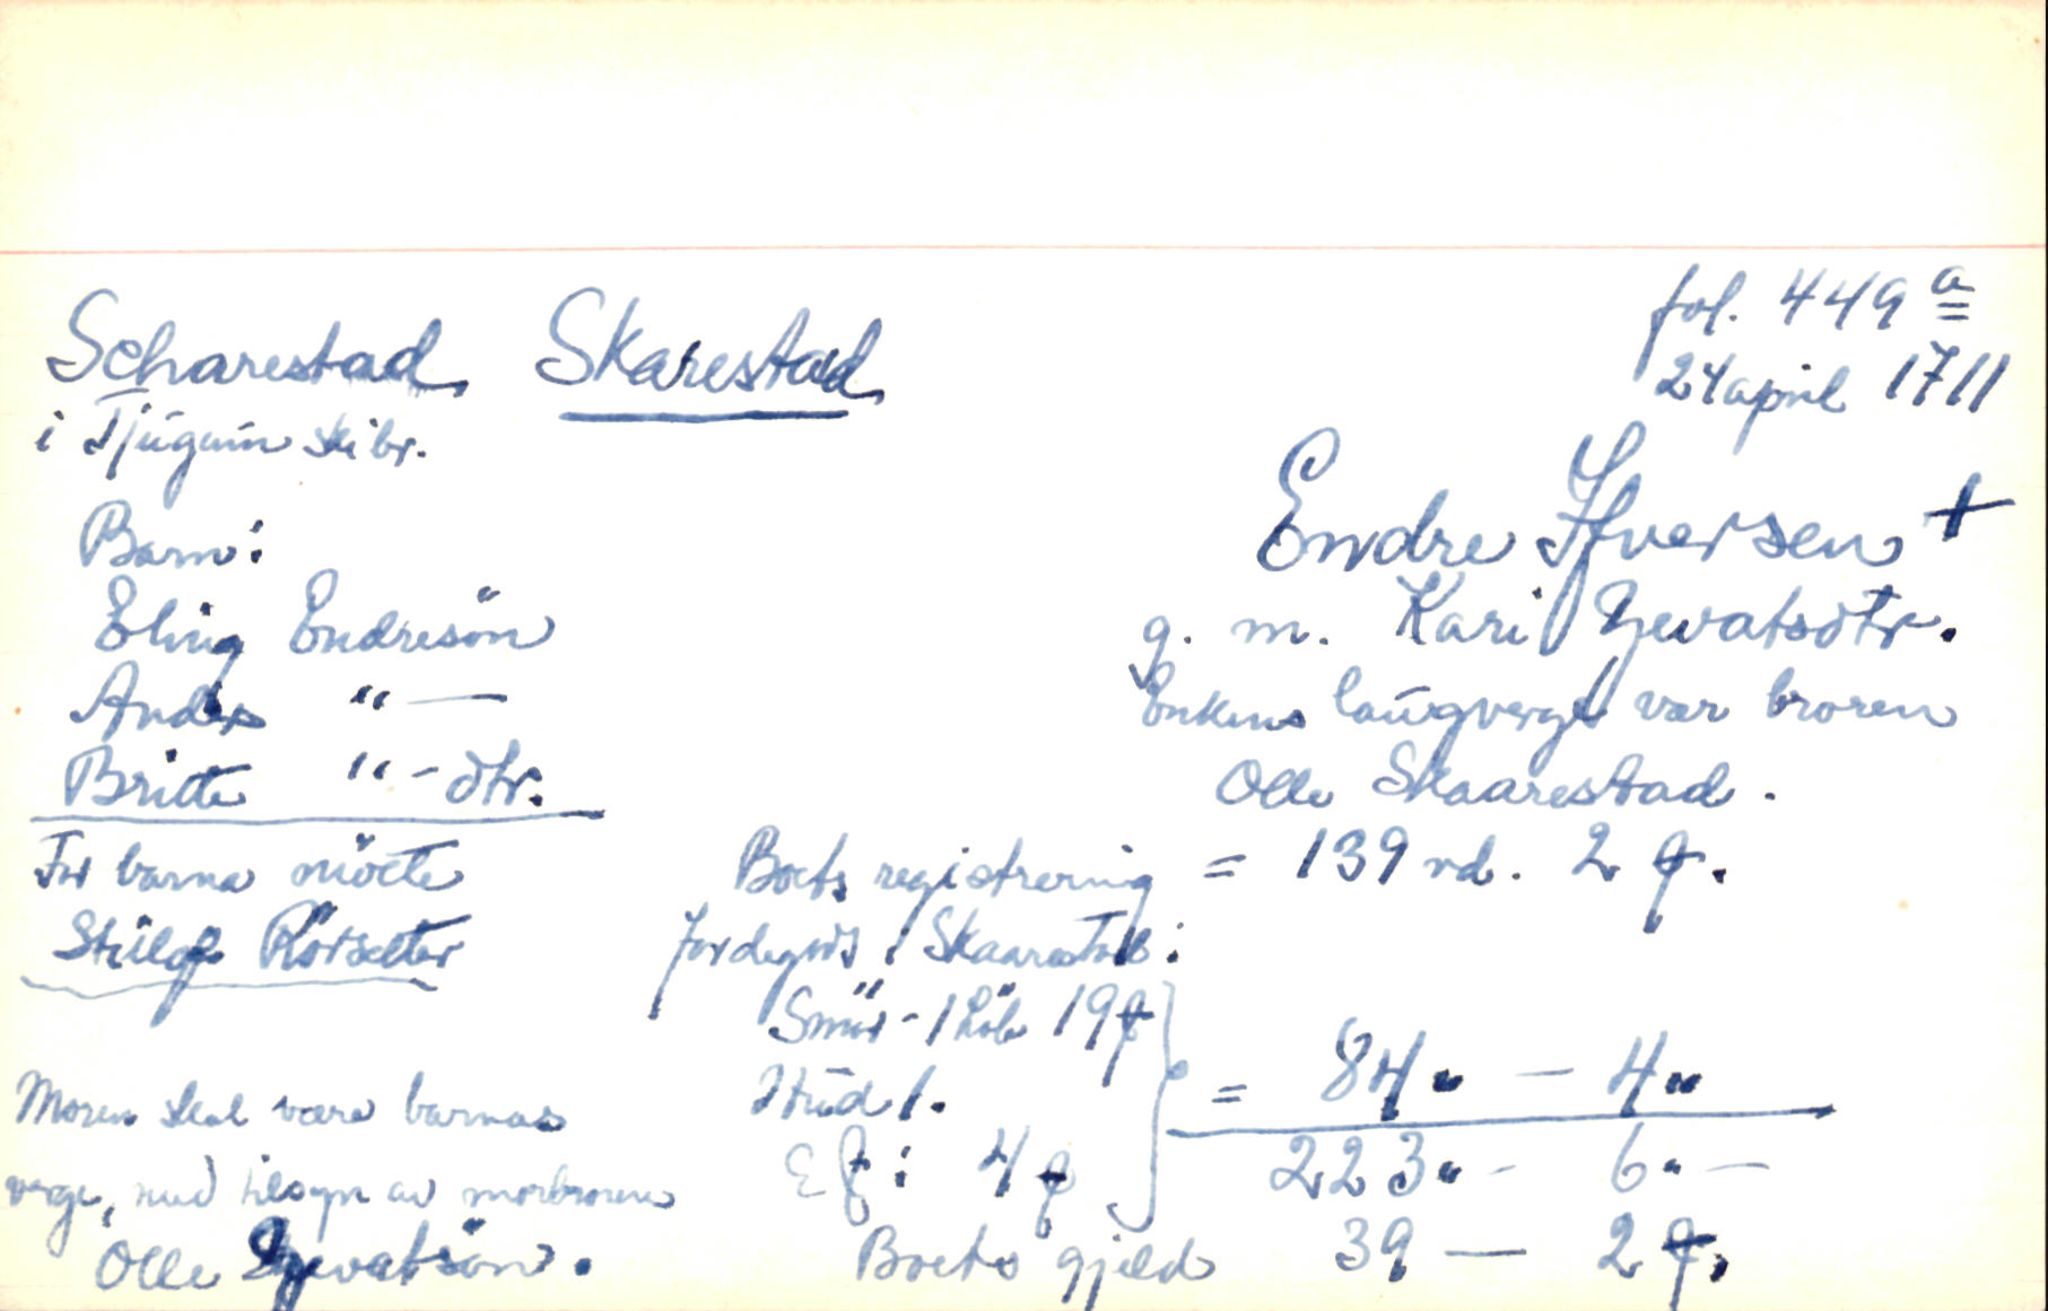 fol. 449 a
Scharestad Skarestad
24 april 1711
i Tjugum skibr.
Endre Ifversen +
Barn:
g. m. Kari Zevatsdtr.
Eling Endresön
Enkens laugverge var broren
Anders " —
Olle Skaarestad.
Britte " - dtr.
For barna mötte
Boets registrering = 139 rd. 2 ₰.
jordegods i Skaarestad:
Smör - 1 Löb 19 ₰
= 84 " — 4 "
Hud 1.
Moren skal være barnas
223 " - 6 " —
verge, med tilsyn av morbroren
4 ₰
Olle Zevatsön.
Boets gjeld 39 — 2 ₰.